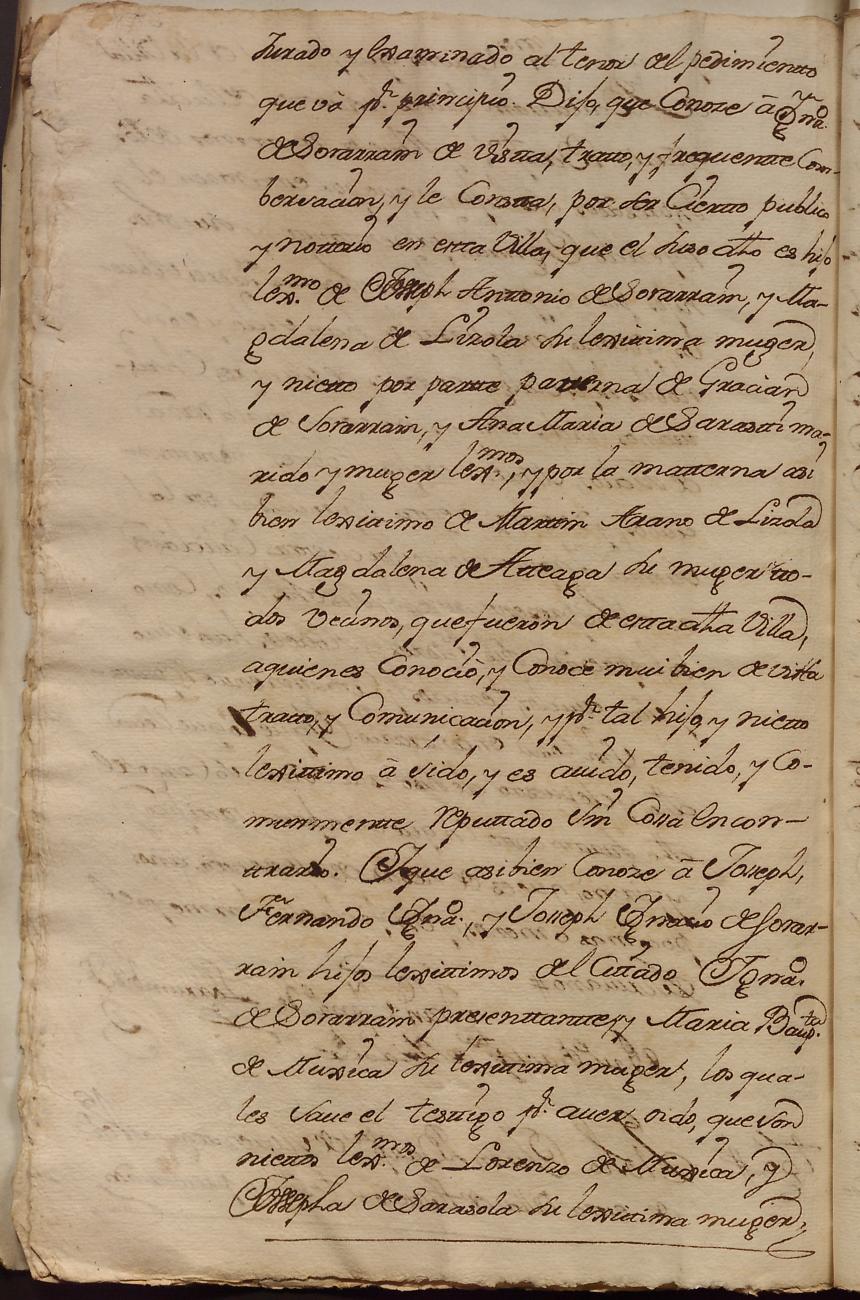 Jurado y Exsaminado al tenor del pedimientto
que vá pr. principio. Dijo, que Conoze â Ygno.
de Sorarrain de Vistta, tratto, y frequentte Com-
bersacion, y le Constta, por ser Ciertto publico
y nottorio en estta Villa, que el suso dho es hijo
lexmo. de Joseph Anttonio de Sorarrain, y Ma-
gdalena de Lizola su lexittima muger,
y nietto por partte patterna de Gracian
de Sorarrain, y Ana Maria de Sarastti ma-
rido y muger lexmos., y por la matterna asi
bien lexitimo de Marttin Arano de Lizola
y Magdalena de Atteaga su muger tto-
dos Vecinos, que fueron de estta dha Villa,
aquienes Conoció, y Conoce mui bien de vistta
tratto, y Comunicacion, y pr. tal hijo, y nietto
lexittimo â sido, y es avido, tenido, y Co-
munmentte reputtado sin Cossa En con-
ttrario. Y que asibien Conoze â Joseph,
Fernando Ygno., y Joseph Ygnacio de Sorar-
rain hijos lexittimos del Cittado Ygno.
de Sorarrain presenttantte, y Maria Bauptta.
de Muxica su lexittima muger, los qua-
les save el testtigo pr. aver oido, que son
niettos lexmos. de Lorenzo de Muxica, y
Josepha de Sarasola su lexittima muger,